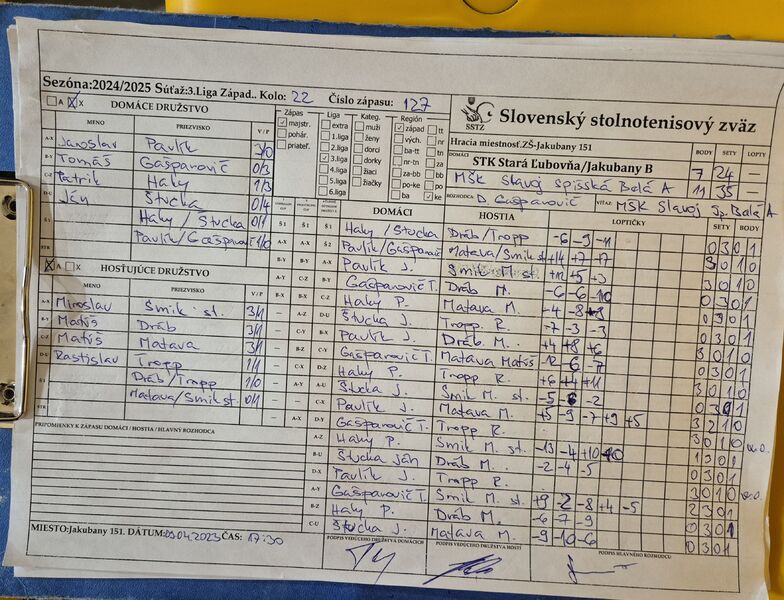 Sezóna:2024/2025 Súťaž:3.Liga Západ.. Kolo: 22 Číslo zápasu: 127
A X DOMÁCE DRUŽSTVO
MENO PRIEZVISKO V / P
A-X Jaroslav Pavlík 3/0
B-Y Tomáš Gašparovič 0/3
C-Z Patrik Haky 1/3
D-U Ján Štucka 0/4
Š1 Haky / Stucka 0/1
Pavlík/Gašparovič 1/0
STR
A X HOSŤUJÚCE DRUŽSTVO
MENO PRIEZVISKO V / P
A-X Miroslav Smik st. 3/1
B-Y Matúš Dráb 3/1
C-Z Matúš Matava 3/1
D-U Rastislav Tropp 1/1
Š1 Dráb/Tropp 1/0
Matava/Smik st. 0/1
STR
PRIPOMIENKY K ZÁPASU DOMÁCI / HOSTIA / HLAVNÝ ROZHODCA
MIESTO:Jakubany 151. DÁTUM: ČAS: 17:30
Zápas
majstr.
pohár.
priateľ.
Liga
extra
1.liga
2.liga
3.liga
4.liga
5.liga
6.liga
Kateg.
muži
ženy
dorci
dorky
žiaci
žiačky
Región
západ tt
vých. tn
ba-tt nr
nr-tn za
za-bb po
po-ke bb
ba ke
SSTZ
Slovenský stolnotenisový zväz
Hracia miestnosť.ZŠ-Jakubany 151 BODY SETY LOPTY
DOMÁCI STK Stará Ľubovňa/Jakubany B 7 24 —
MŠK Slavoj Spišská Belá A 11 35 —
ROZHODCA: D. Gašparovič VÍŤAZ: MŠK Slavoj Sp. Belá A
DOMÁCI HOSTIA LOPTIČKY SETY BODY
Š1 Š1 Š1 Haky /Stucka Dráb/Tropp -6 -9 -11 0 3 0 1
A-X A-X Š2 Pavlík/Gašparovič Matava/Smik st. +14 +7 +7 3 0 1 0
B-Y B-Y A-X Pavlík J. Smik M. st. +12 +5 +3 3 0 1 0
A-Y C-Z B-Y Gašparovič T. Dráb M. -6 -6 -10 0 3 0 1
B-X B-X C-Z Haky P. Matava M. -4 -8 0 3 0 1
— A-Z D-U Štucka J. Tropp R. -7 -3 -3 0 3 0 1
— C-Y B-X Pavlík J. Dráb M. +4 +8 +6 3 0 1 0
— B-Z C-Y Gašparovič T. Matava Matúš -12 -6 -7 0 3 0 1
— C-X D-Z Haky P. Tropp R. +6 +4 +11 3 0 1 0
— A-Y A-U Štucka J. Smik M. st. -5 -6 -2 0 3 0 1
— — C-X Pavlík J. Matava M. +5 -9 -7 +9 +5 3 2 1 0
— A-X D-Y Gašparovič T. Tropp R. 3 0 1 0 w.o.
A-Z Haky P. Smik M. st. -13 -4 +10 -10 1 3 0 1
B-U Štucka Ján Dráb M. -2 -4 -5 0 3 0 1
D-X Pavlík J. Tropp R. 3 0 1 0 w.o.
A-Y Gašparovič T. Smik M. st. +9 -2 -8 +4 -5 2 3 0 1
B-Z Haky P. Dráb M. -6 -7 -9 0 3 0 1
C-U Štucka J. Matava M. -9 -10 -6 0 3 0 1
PODPIS VEDÚCEHO DRUŽSTVA DOMÁCICH PODPIS VEDÚCEHO DRUŽSTVA HOSTÍ PODPIS HLAVNÉHO ROZHODCU